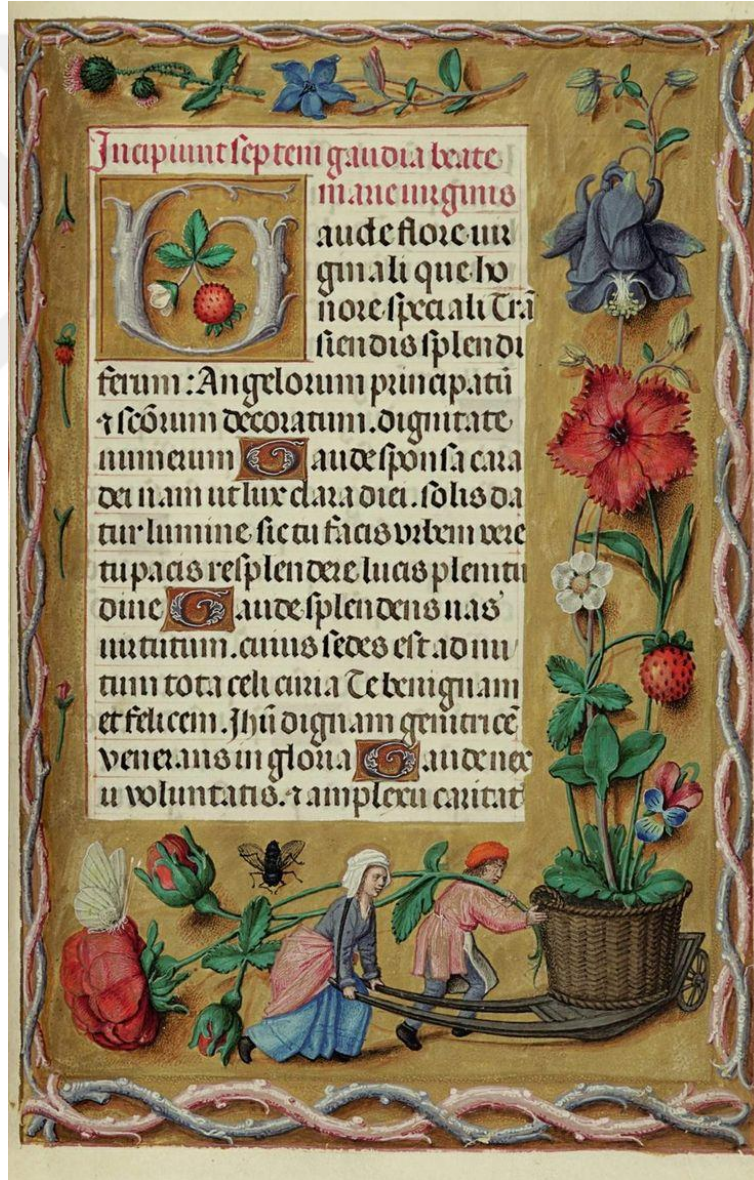 Incipiunt septem gaudia beate
marie uirginis
Gaude flore uir
ginali que ho
nore speciali Trã
siendis splendi
ferum : Angelorum principatũ
⁊ scõrum decoratum . dignitate
numerum Gaude sponsa cara
dei nam ut lux clara diei . solis da
tur lumine sic tu facis orbem vere
tu pacis resplendere lucis plenitu
dine Gaude splendens uas
uirtutum . cuius sedes est ad nu
tum tota celi curia Te benignam
et felicem . Jhũ dignam genitricẽ
venerans in gloria Gaude nex
u voluntatis . ⁊ amplexu caritat